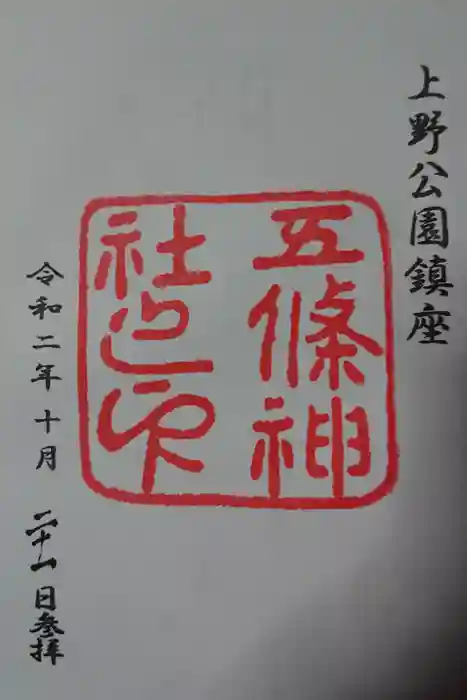 上野公園鎮座
五條神
社之印
令和二年十月 二十一日参拝